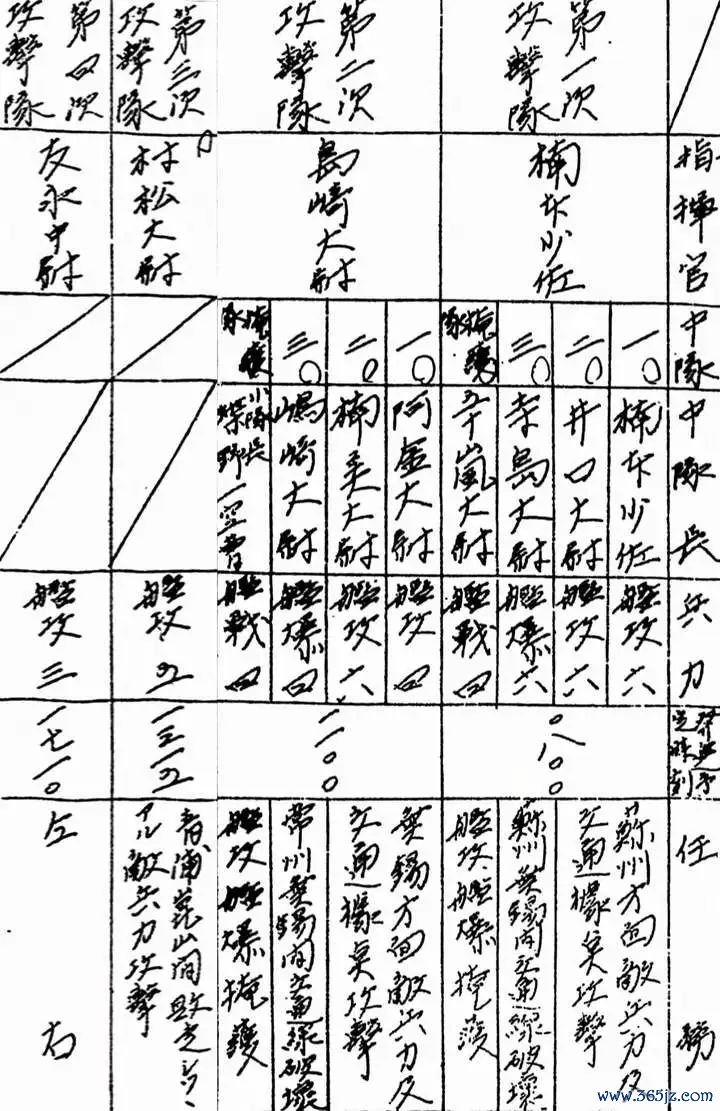 指揮官
中隊
中隊長
兵力
発進予
定時刻
任務
第一次
攻撃隊
楠本少佐
一〇
二〇
三〇
掩護
隊
楠本少佐
井口大尉
寺島大尉
五十嵐大尉
艦攻六
艦攻六
艦爆六
艦戦四
〇八〇〇
蘇州方面敵兵力及
交通機関攻撃
蘇州無錫間交通線破壊
艦攻艦爆掩護
第二次
攻撃隊
島崎大尉
一〇
二〇
三〇
掩護
隊
阿金大尉
楠美大尉
嶋崎大尉
小隊長
一空曹
艦攻四
艦攻六
艦爆四
艦戦四
一一〇〇
無錫方面敵兵力及
交通機関攻撃
常州無錫間交通線破壊
艦攻艦爆掩護
第三次
攻撃隊
村松大尉
艦攻
青浦崑山間敗走シツヽ
アル敵兵力攻撃
第四次
攻撃隊
友永中尉
艦攻三
一七一〇
仝右
www.365jz.com